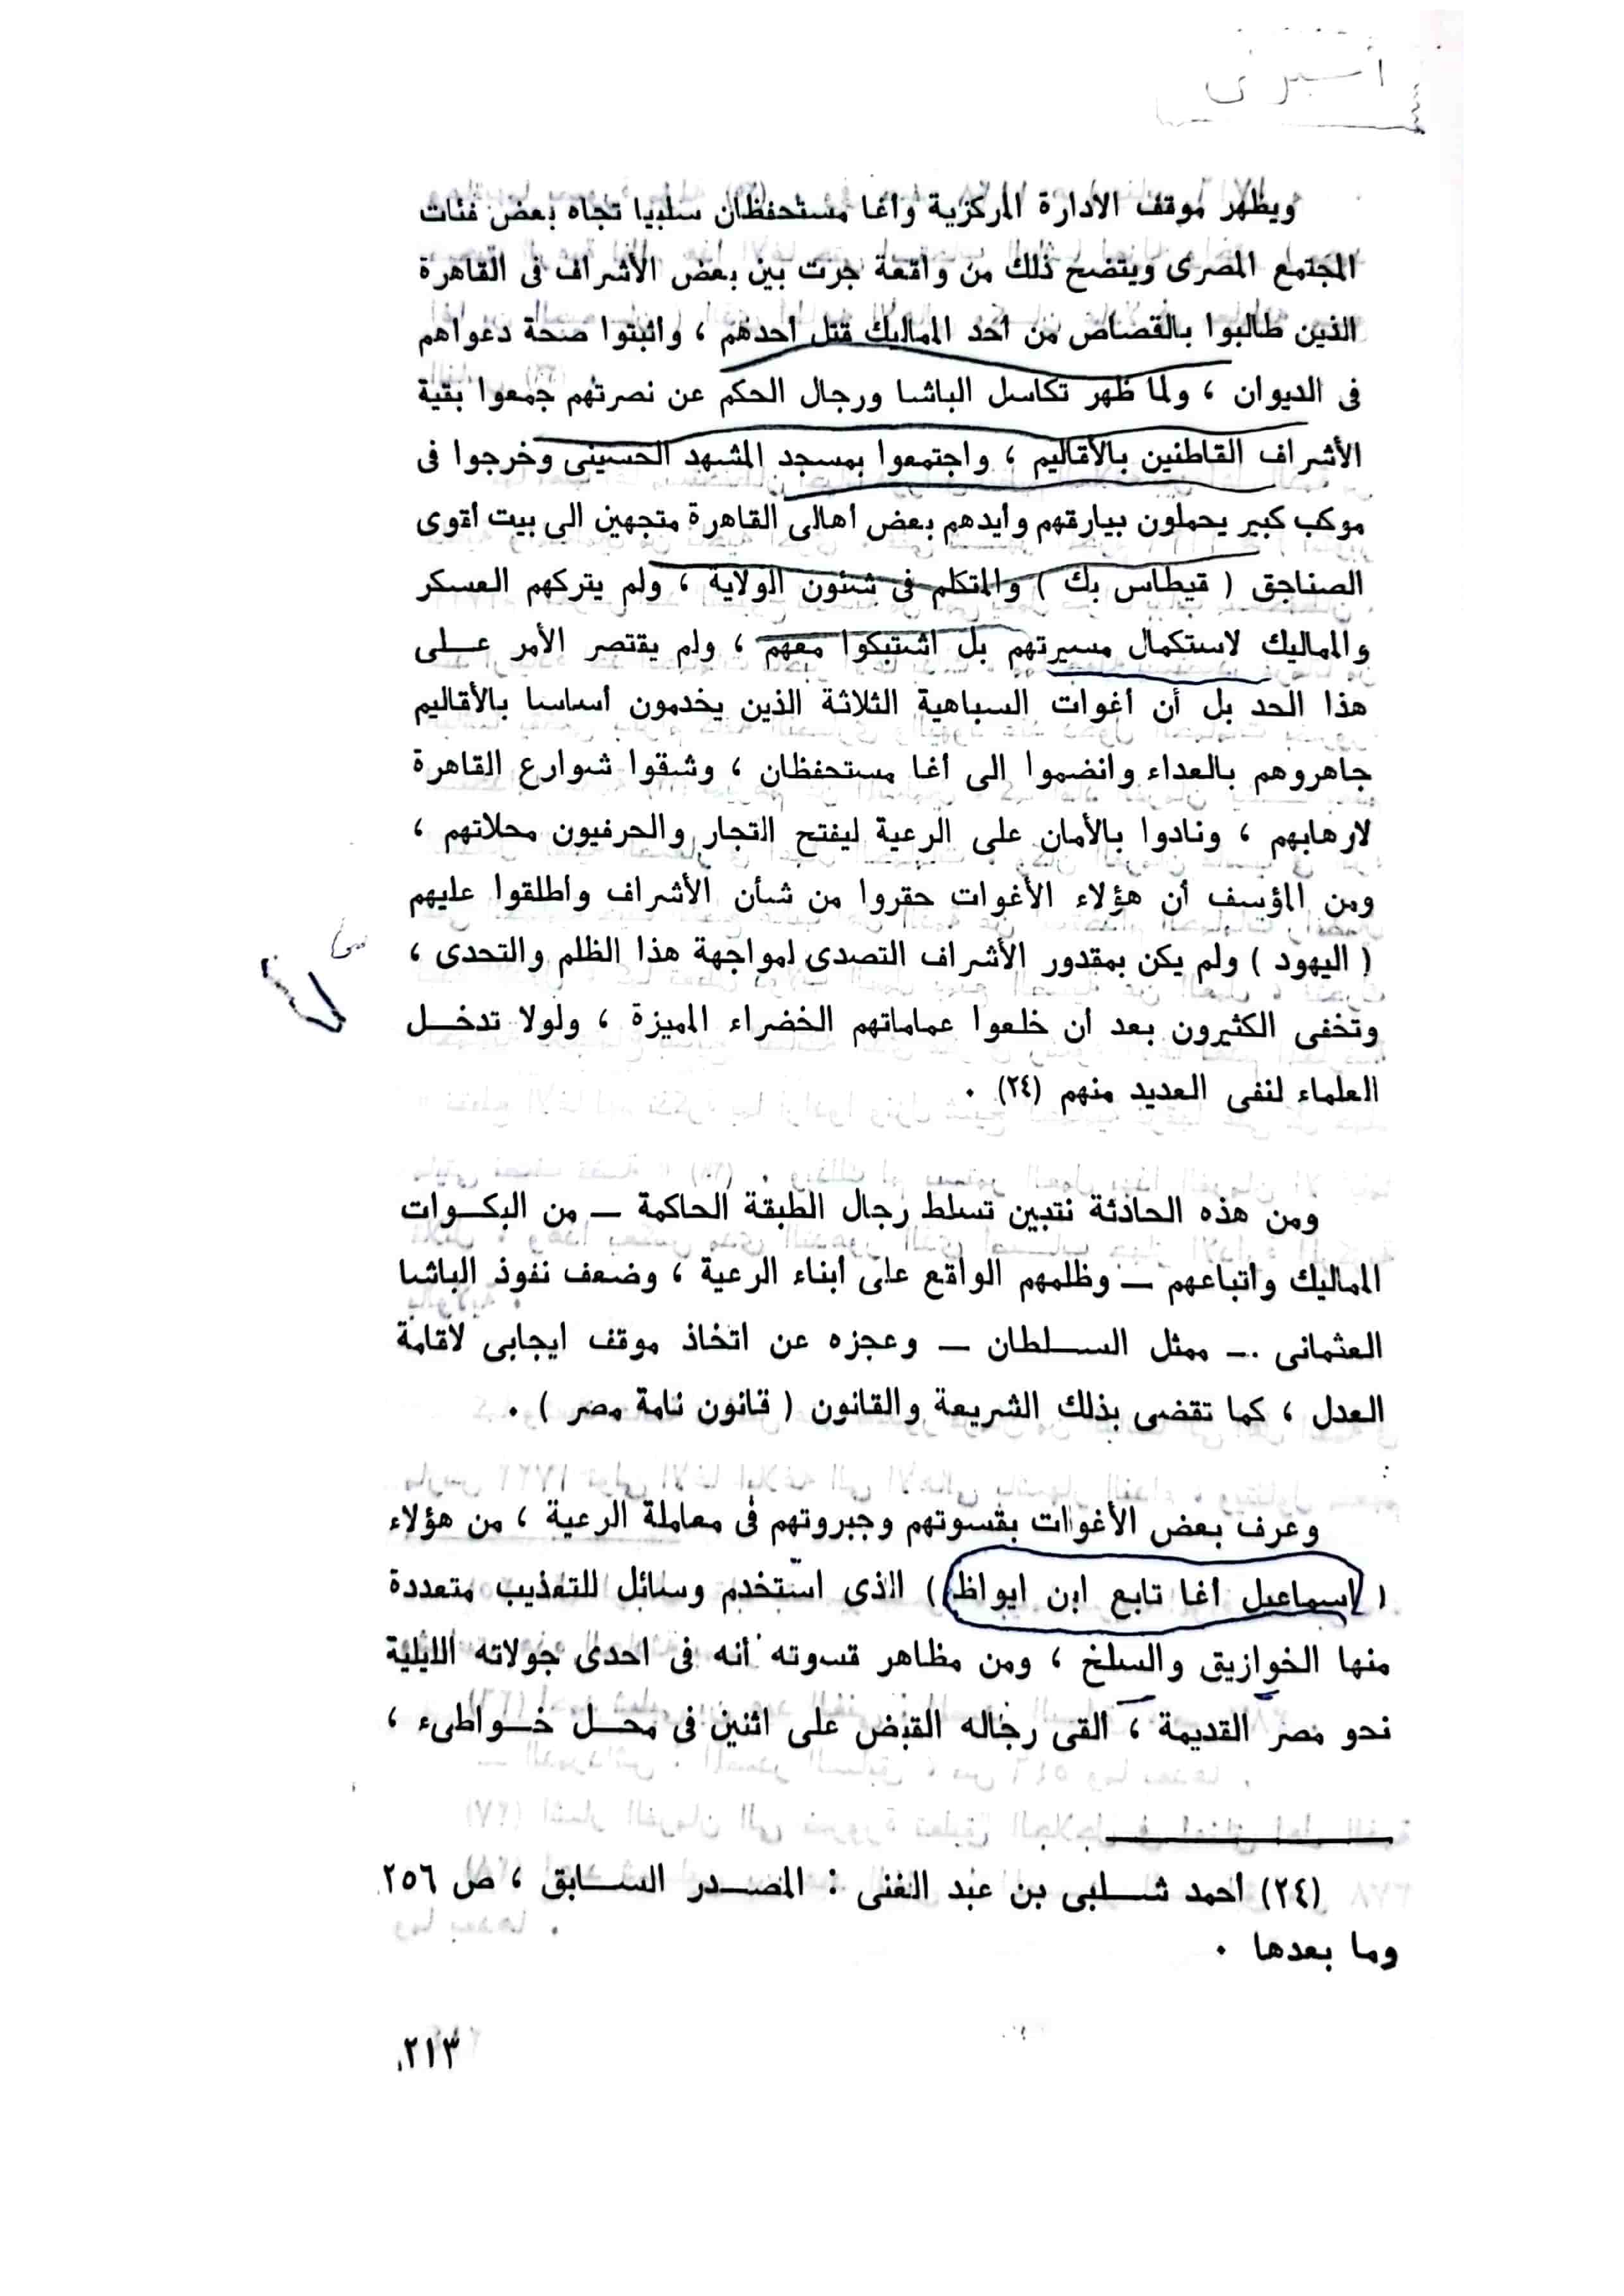 ويظهر موقف الادارة المركزية وأغا مستحفظان سلبيا تجاه بعض فئات
المجتمع المصرى ويتضح ذلك من واقعة جرت بين بعض الأشراف فى القاهرة
الذين طالبوا بالقصاص من أحد المماليك قتل أحدهم ، واثبتوا صحة دعواهم
فى الديوان ، ولما ظهر تكاسل الباشا ورجال الحكم عن نصرتهم جمعوا بقية
الأشراف القاطنين بالأقاليم ، واجتمعوا بمسجد المشهد الحسينى وخرجوا فى
موكب كبير يحملون بيارقهم وأيدهم بعض أهالى القاهرة متجهين الى بيت أقوى
الصناجق ( قيطاس بك ) والمتكلم فى شئون الولاية ، ولم يتركهم العسكر
والمماليك لاستكمال مسيرتهم بل اشتبكوا معهم ، ولم يقتصر الأمر عــلى
هذا الحد بل أن أغوات السباهية الثلاثة الذين يخدمون أساسا بالأقاليم
جاهروهم بالعداء وانضموا الى أغا مستحفظان ، وشقوا شوارع القاهرة
لارهابهم ، ونادوا بالأمان على الرعية ليفتح التجار والحرفيون محلاتهم ،
ومن المؤسف أن هؤلاء الأغوات حقروا من شأن الأشراف وأطلقوا عليهم
( اليهود ) ولم يكن بمقدور الأشراف التصدى لمواجهة هذا الظلم والتحدى ،
وتخفى الكثيرون بعد أن خلعوا عماماتهم الخضراء المميزة ، ولولا تدخــل
العلماء لنفى العديد منهم (٢٤) .
ومن هذه الحادثة نتبين تسلط رجال الطبقة الحاكمة — من البكــوات
المماليك واتباعهم — وظلمهم الواقع على أبناء الرعية ، وضعف نفوذ الباشا
العثمانى — ممثل الســلطان — وعجزه عن اتخاذ موقف ايجابى لاقامة
العدل ، كما تقضى بذلك الشريعة والقانون ( قانون نامة مصر ) .
وعرف بعض الأغوات بقسوتهم وجبروتهم فى معاملة الرعية ، من هؤلاء
( اسماعيل أغا تابع ابن ايواظ ) الذى استخدم وسائل للتعذيب متعددة
منها الخوازيق والسلخ ، ومن مظاهر قسوته أنه فى احدى جولاته الليلية
نحو مصر القديمة ، القى رجاله القبض على اثنين فى محــل خــواطىء ،
(٢٤) أحمد شــلبى بن عبد الغنى : المصــدر الســابق ، ص ٢٥٦
وما بعدها .
٢١٣